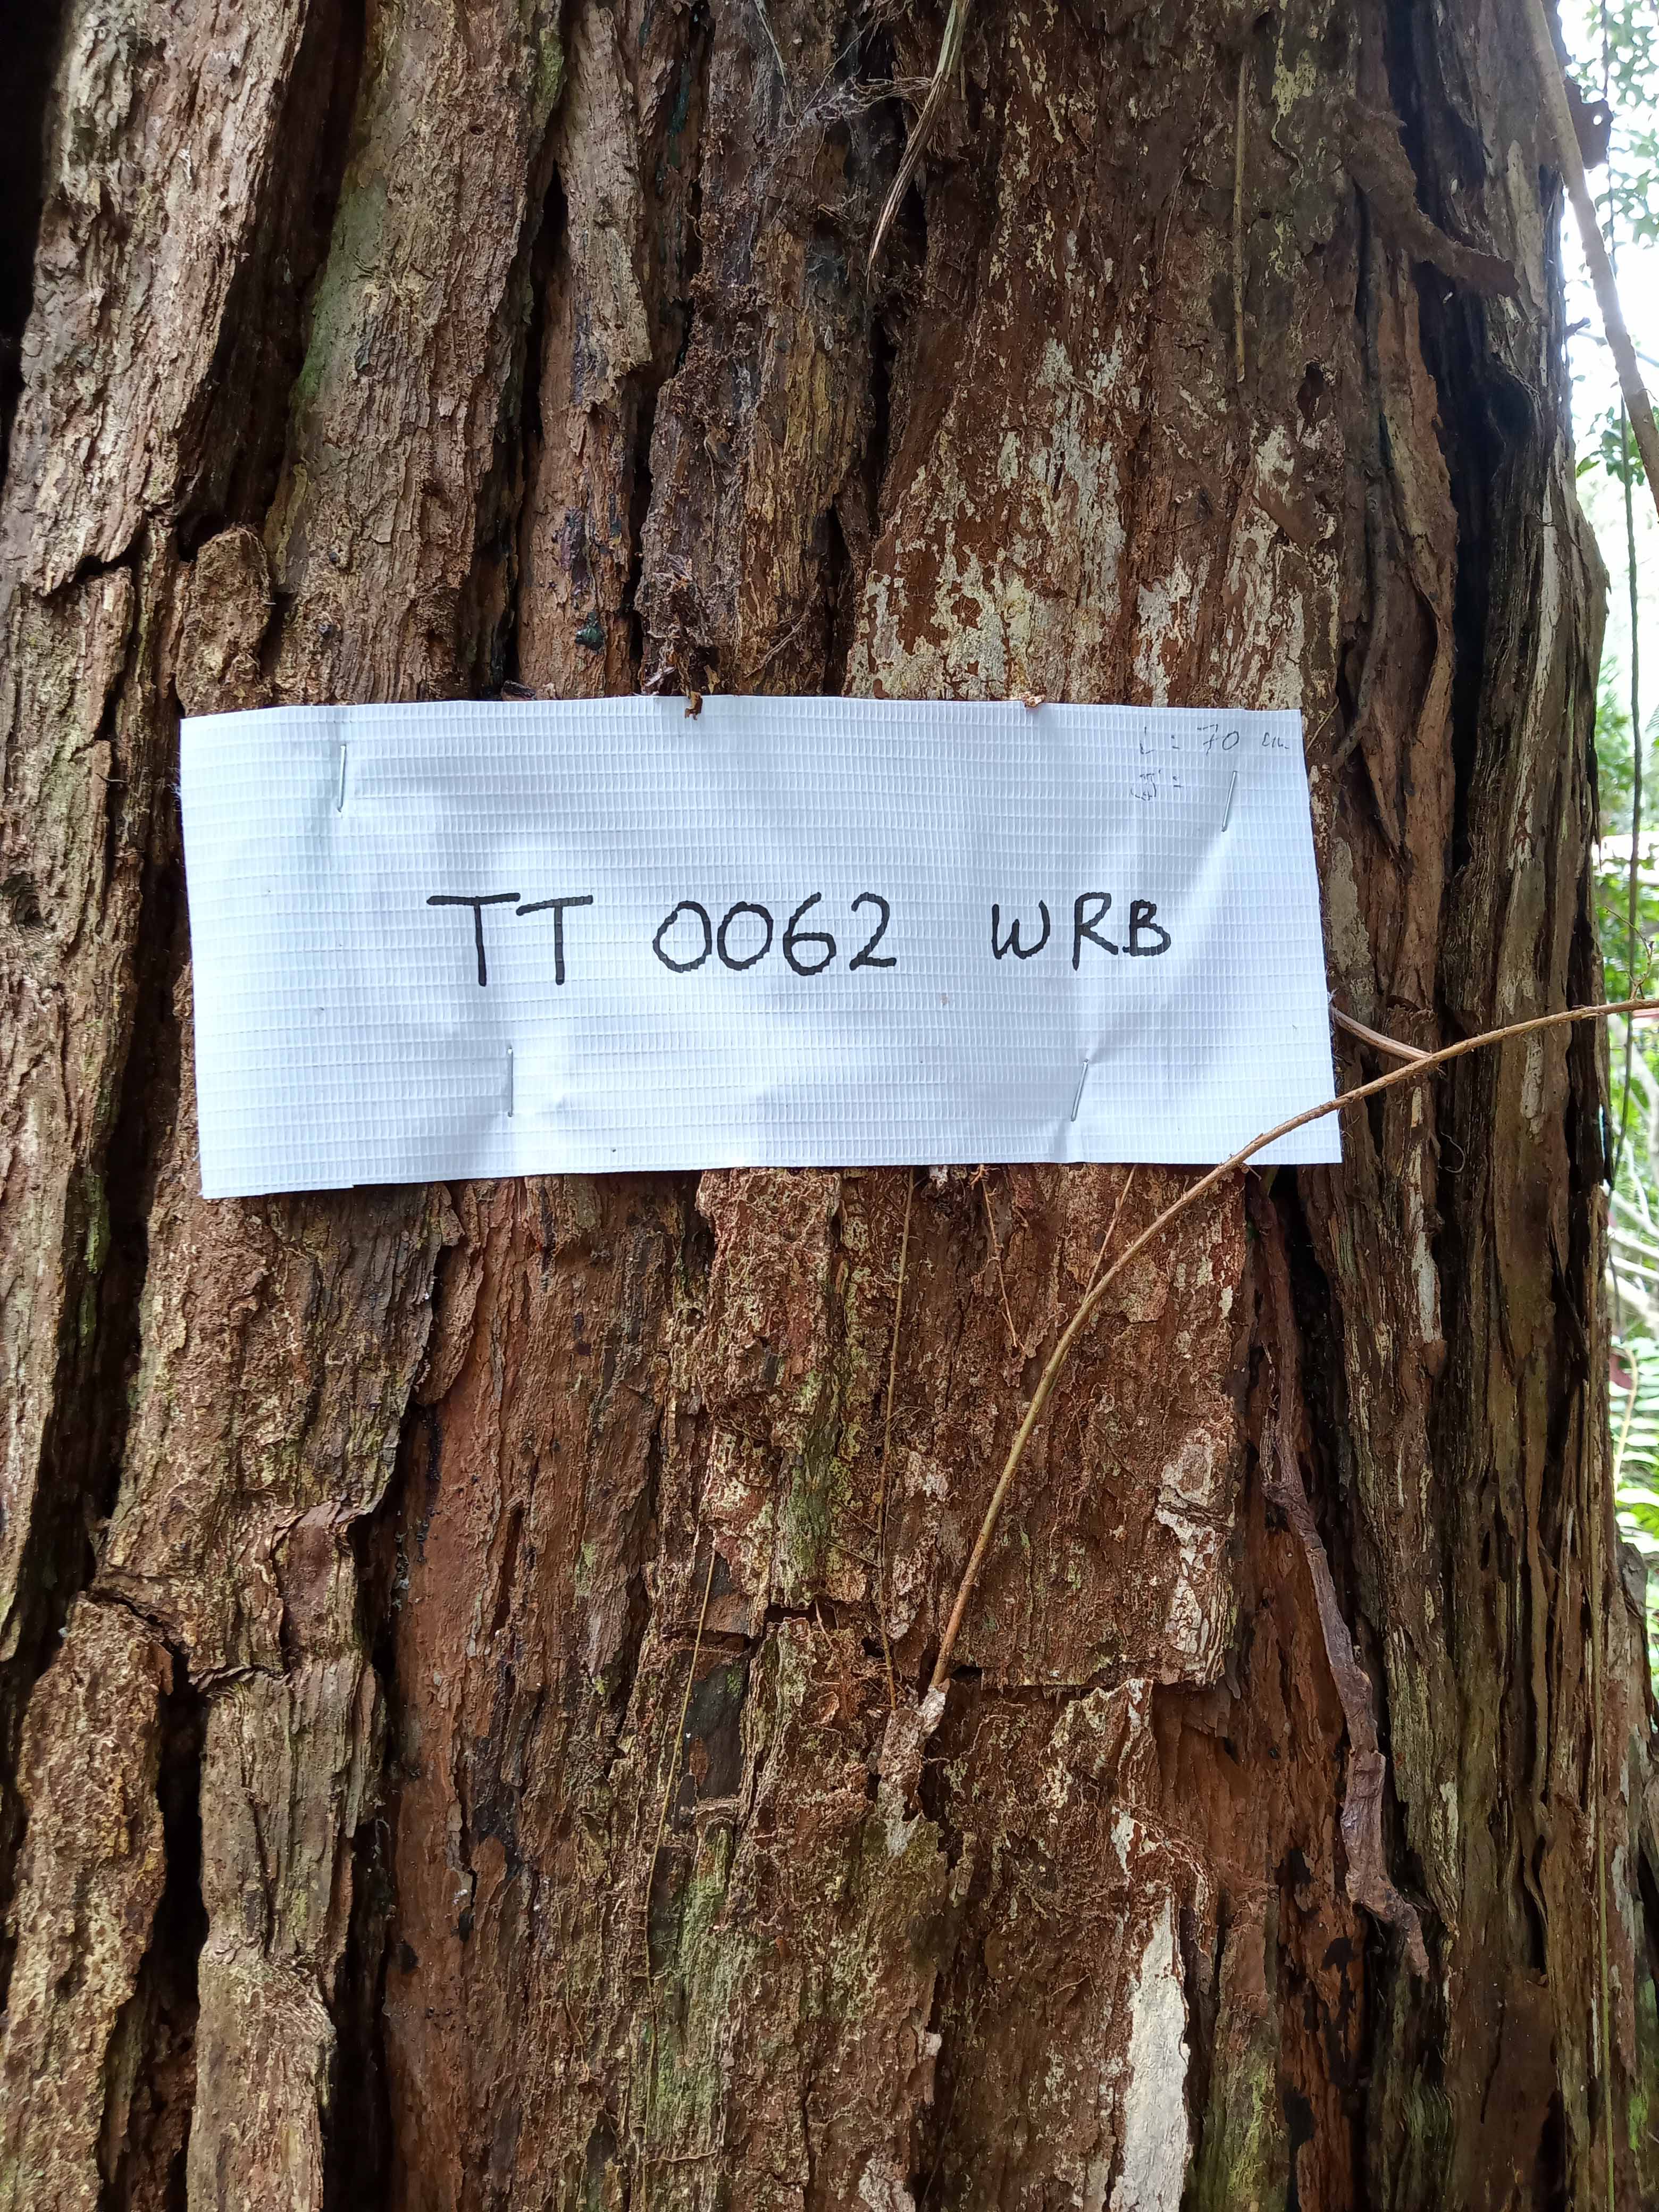 L : 70 cm
TT 0062 WRB